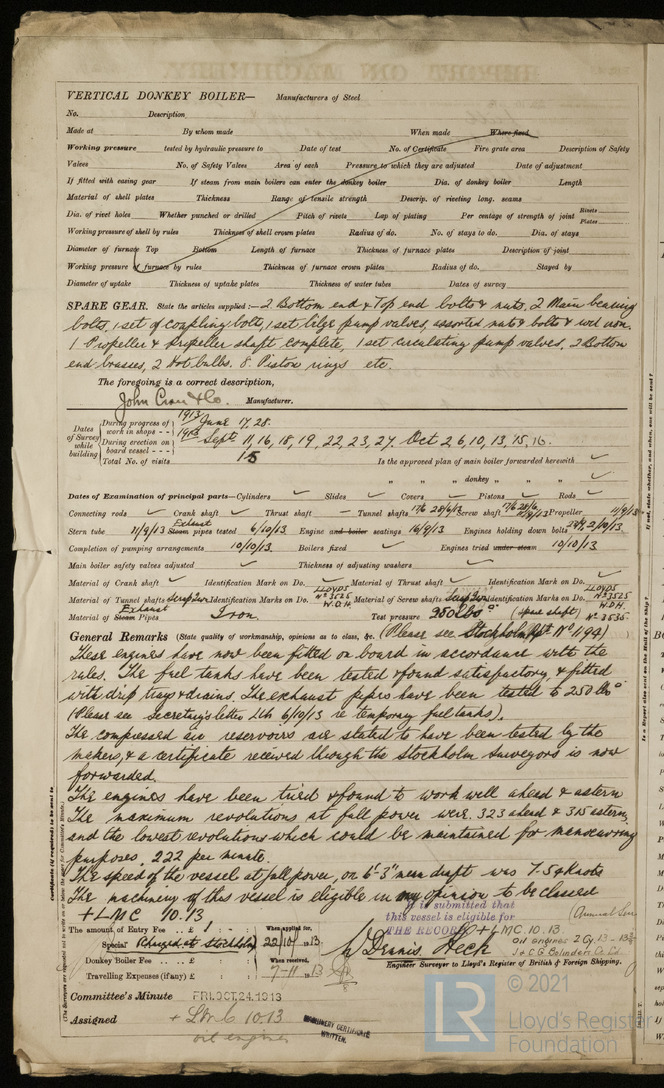 VERTICAL DONKEY BOILER— Manufacturers of Steel
No. Description
Made at By whom made When made Where fixed
Working pressure tested by hydraulic pressure to Date of test No. of Certificate Fire grate area Description of Safety
Valves No. of Safety Valves Area of each Pressure to which they are adjusted Date of adjustment
If fitted with easing gear If steam from main boilers can enter the donkey boiler Dia. of donkey boiler Length
Material of shell plates Thickness Range of tensile strength Descrip. of riveting long. seams
Dia. of rivet holes Whether punched or drilled Pitch of rivets Lap of plating Per centage of strength of joint Rivets Plates
Working pressure of shell by rules Thickness of shell crown plates Radius of do. No. of stays to do. Dia. of stays
Diameter of furnace Top Bottom Length of furnace Thickness of furnace plates Description of joint
Working pressure of furnace by rules Thickness of furnace crown plates Radius of do. Stayed by
Diameter of uptake Thickness of uptake plates Thickness of water tubes Dates of survey
SPARE GEAR. State the articles supplied:— 2 Bottom end & Top end bolts & nuts, 2 Main bearing
bolts, 1 set of coupling bolts, 1 set bilge pump valves, assorted nuts & bolts & iron.
1 Propeller & propeller shaft complete, 1 set circulating pump valves, 2 Bottom
end brasses, 2 Hot bulbs. 8 Piston rings etc.
The foregoing is a correct description,
John Cran & Co. Manufacturer.
Dates of Survey while building
During progress of work in shops - - 1913 June 17, 28.
During erection on board vessel - - - 1913 Sept 11, 16, 18, 19, 22, 23, 27, Oct 2, 6, 10, 13, 15, 16.
Total No. of visits 15 Is the approved plan of main boiler forwarded herewith ✓
" " " donkey " " " ✓
Dates of Examination of principal parts—Cylinders ✓ Slides ✓ Covers ✓ Pistons ✓ Rods ✓
Connecting rods ✓ Crank shaft ✓ Thrust shaft – Tunnel shafts 17/6 28/6/13 Screw shaft 17/6 28/6 Propeller 11/9/13
Stern tube 11/9/13 Exhaust Steam pipes tested 6/10/13 Engine and boiler seatings 16/9/13 Engines holding down bolts 2/10/13
Completion of pumping arrangements 10/10/13 Boilers fixed ✓ Engines tried under steam 10/10/13
Main boiler safety valves adjusted ✓ Thickness of adjusting washers ✓
Material of Crank shaft ✓ Identification Mark on Do. ✓ Material of Thrust shaft ✓ Identification Mark on Do. ✓
Material of Tunnel shafts Scrap Iron Identification Marks on Do. LLOYDS Nº 3525 W.D.H. Material of Screw shafts Scrap Iron Identification Marks on Do. LLOYDS Nº 3525 W.D.H.
Material of Exhaust Steam Pipes Iron Test pressure 250 lbs □" (spare shaft) Nº 3536
General Remarks (State quality of workmanship, opinions as to class, &c. (Please see Stockholm Rpt Nº 1194)
These engines have now been fitted on board in accordance with the
rules. The fuel tanks have been tested & found satisfactory, & fitted
with drip trays & drains. The exhaust pipes have been tested to 250 lbs □"
(Please see Secretary's letter dth 6/10/13 re temporary fuel tanks).
The compressed air reservoirs are stated to have been tested by the
makers, & a certificate received through the Stockholm Surveyors is now
forwarded.
The engines have been tried & found to work well ahead & astern
The maximum revolutions at full power were 323 ahead & 315 astern,
and the lowest revolutions which could be maintained for manœuvring
purposes, 222 per minute.
The speed of the vessel at full power, on 6'-3" mean draft was 7.54 knots
The machinery of this vessel is eligible in my opinion to be classed
+ LMC 10.13
It is submitted that
this vessel is eligible for
THE RECORD + LMC 10.13
Oil engines 2 Cy.
The amount of Entry Fee .. £ 1 : When applied for,
Special Charged at Stockholm 22/10/1913
Donkey Boiler Fee .. .. £ : When received,
Travelling Expenses (if any) £ : 7-11-1913
W Dennis Heck
Engineer Surveyor to Lloyd's Register of British & Foreign Shipping.
Committee's Minute FRI. OCT. 24. 1913
Assigned + LMC 10.13
oil engine
MACHINERY CERTIFICATE WRITTEN.
© 2021
LR
Lloyd's Register
Foundation